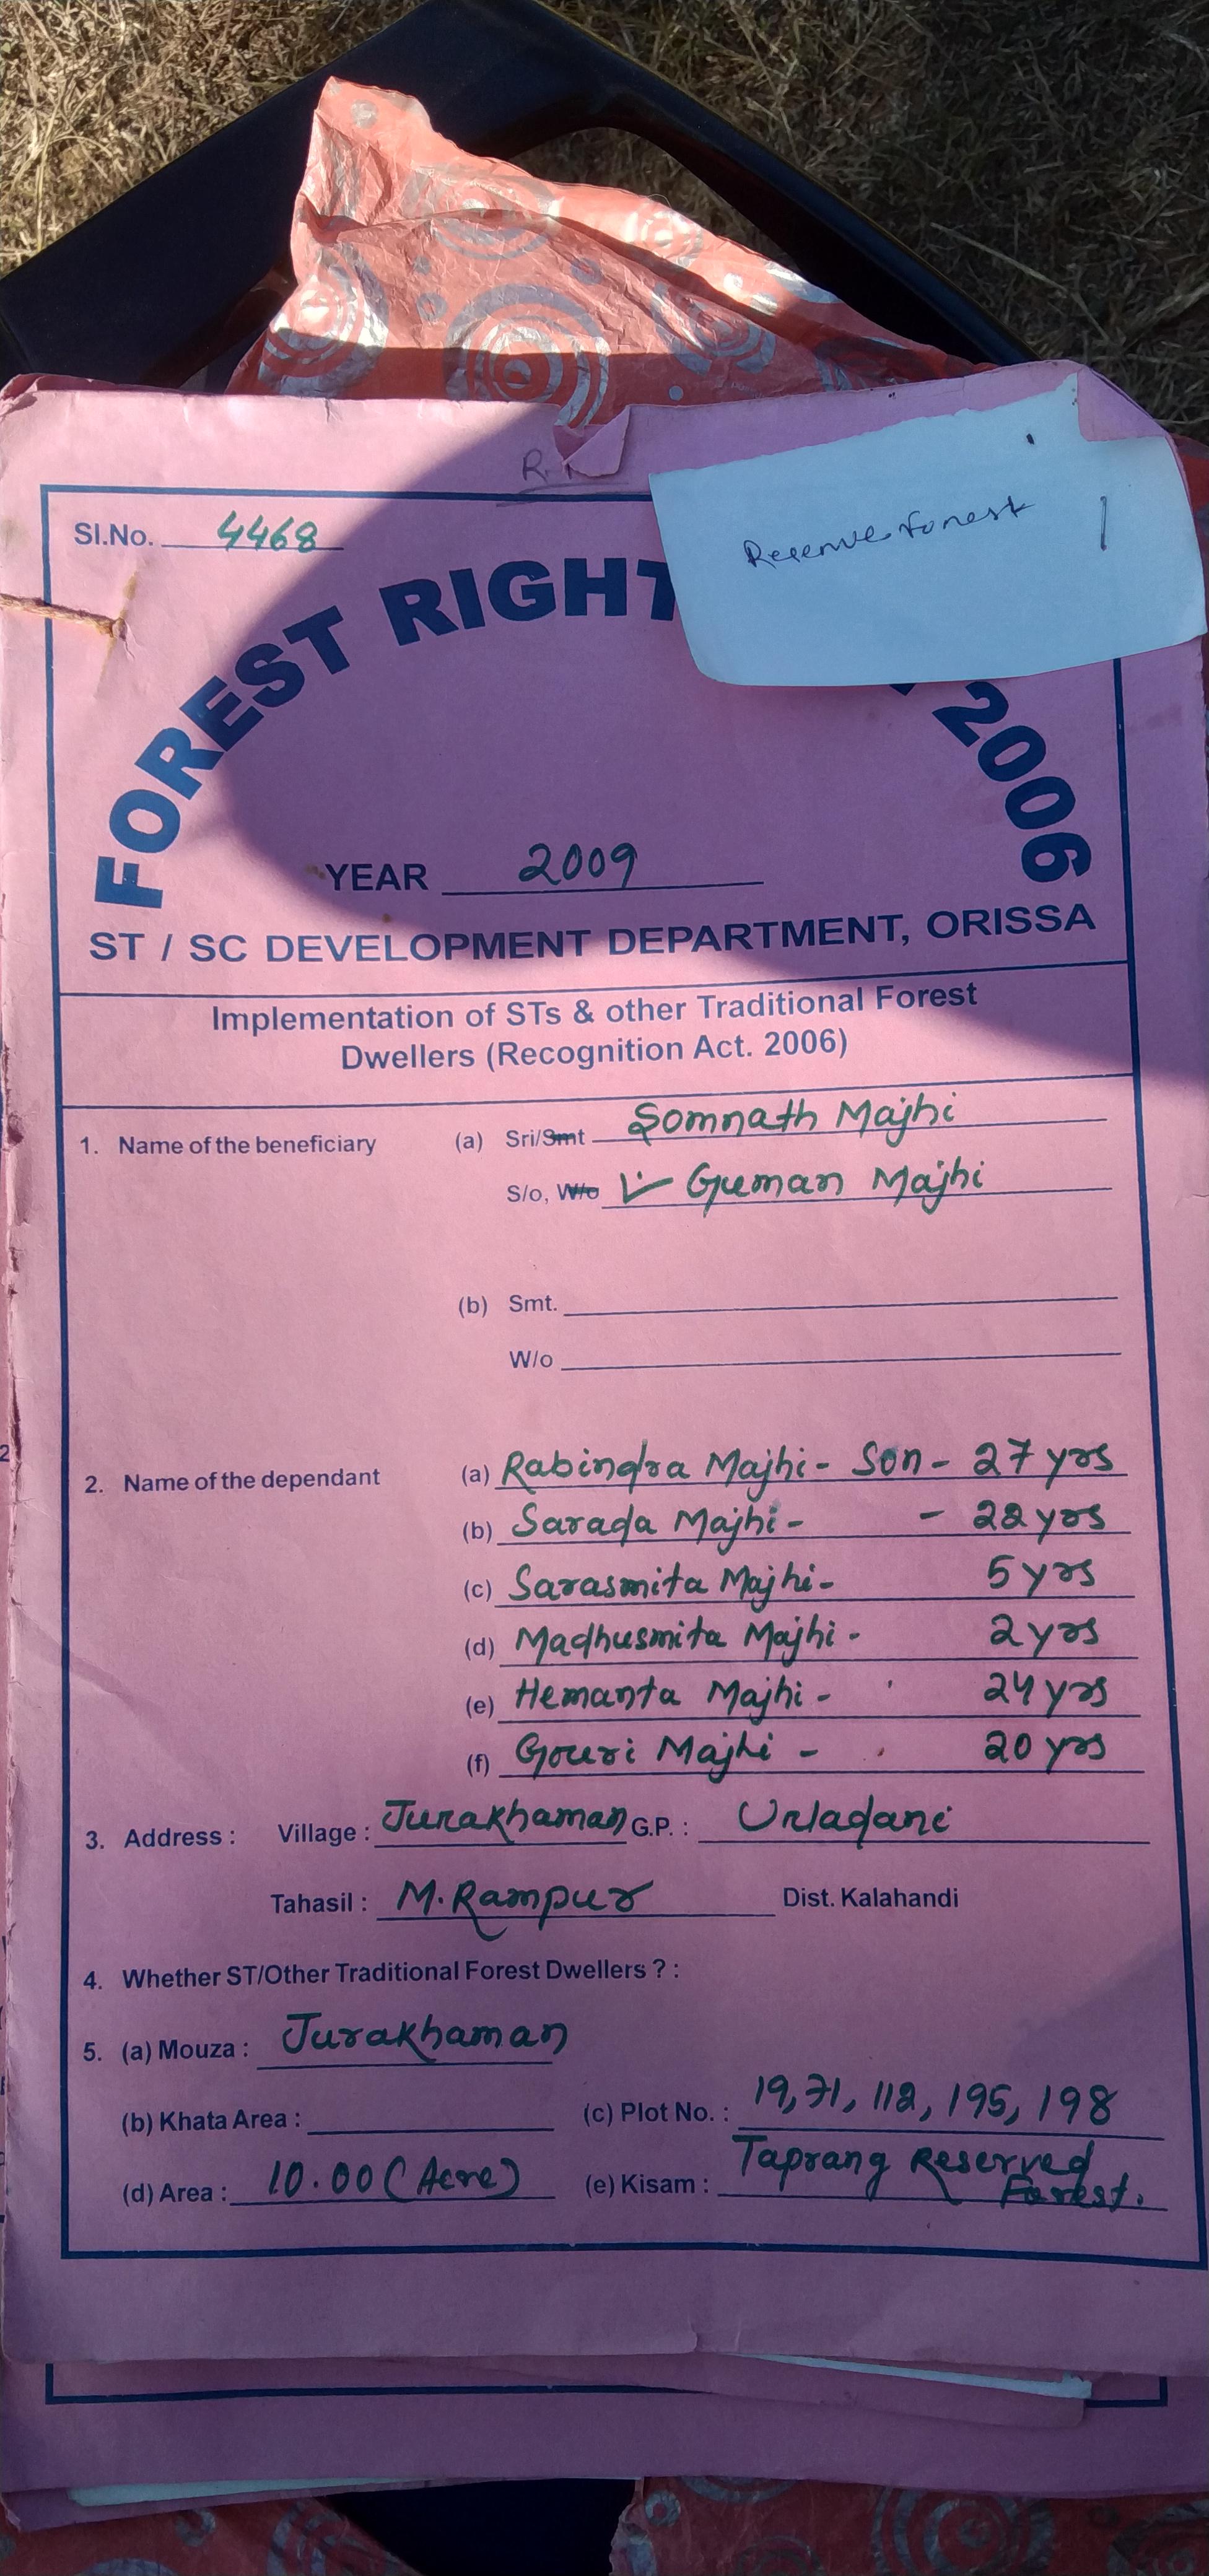 R.
Reserve Forest
Sl.No. 4468
FOREST RIGHT 2006
YEAR 2009
ST / SC DEVELOPMENT DEPARTMENT, ORISSA
Implementation of STs & other Traditional Forest
Dwellers (Recognition Act. 2006)
1. Name of the beneficiary (a) Sri/Smt Somnath Majhi
S/o, W/o Guman Majhi
(b) Smt.
W/o
2. Name of the dependant (a) Rabindra Majhi - Son - 27 yrs
(b) Sarada Majhi - - 22 yrs
(c) Sarasmita Majhi - 5 yrs
(d) Madhusmita Majhi - 2 yrs
(e) Hemanta Majhi - 24 yrs
(f) Gouri Majhi - 20 yrs
3. Address : Village : Jurakhaman G.P. : Urladani
Tahasil : M. Rampur Dist. Kalahandi
4. Whether ST/Other Traditional Forest Dwellers ? :
5. (a) Mouza : Jurakhaman
(b) Khata Area : (c) Plot No. : 19, 71, 112, 195, 198
(d) Area : 10.00 (Acre) (e) Kisam : Taprang Reserved
Forest.